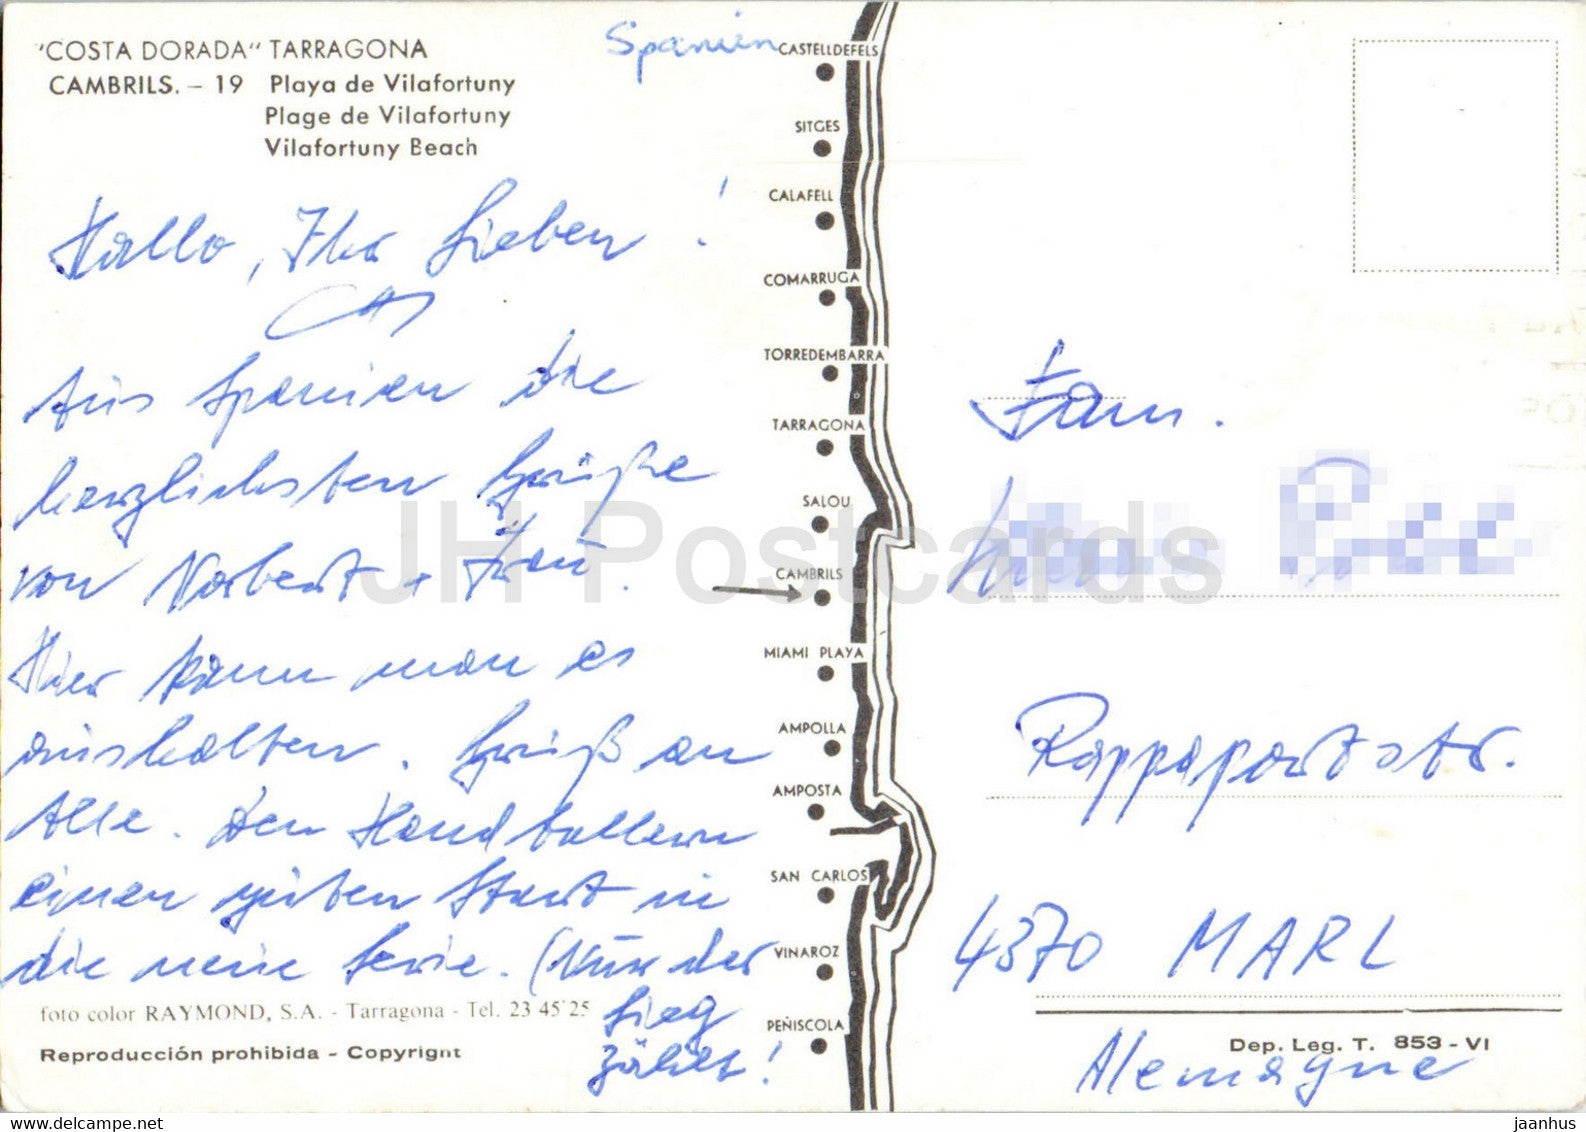 "COSTA DORADA" TARRAGONA
CAMBRILS. – 19 Playa de Vilafortuny
Plage de Vilafortuny
Vilafortuny Beach
Spanien
Hallo, Ihr Lieben!
Aus Spanien die
herzlichsten Grüße
von Norbert + Frau.
Hier kann man es
aushalten. Gruß an
Alle. Den Handballern
einen guten Start in
die neue Serie. (Nur der
Sieg
zählt!
foto color RAYMOND, S.A. - Tarragona - Tel. 23 45 25
Reproducción prohibida - Copyright
CASTELLDEFELS
SITGES
CALAFELL
COMARRUGA
TORREDEMBARRA
TARRAGONA
SALOU
CAMBRILS
MIAMI PLAYA
AMPOLLA
AMPOSTA
SAN CARLOS
VINAROZ
PEÑISCOLA
Fam.
Rappaportstr.
4370 MARL
Alemagne
Dep. Leg. T. 853 - VI
JH Postcards
jaanhus